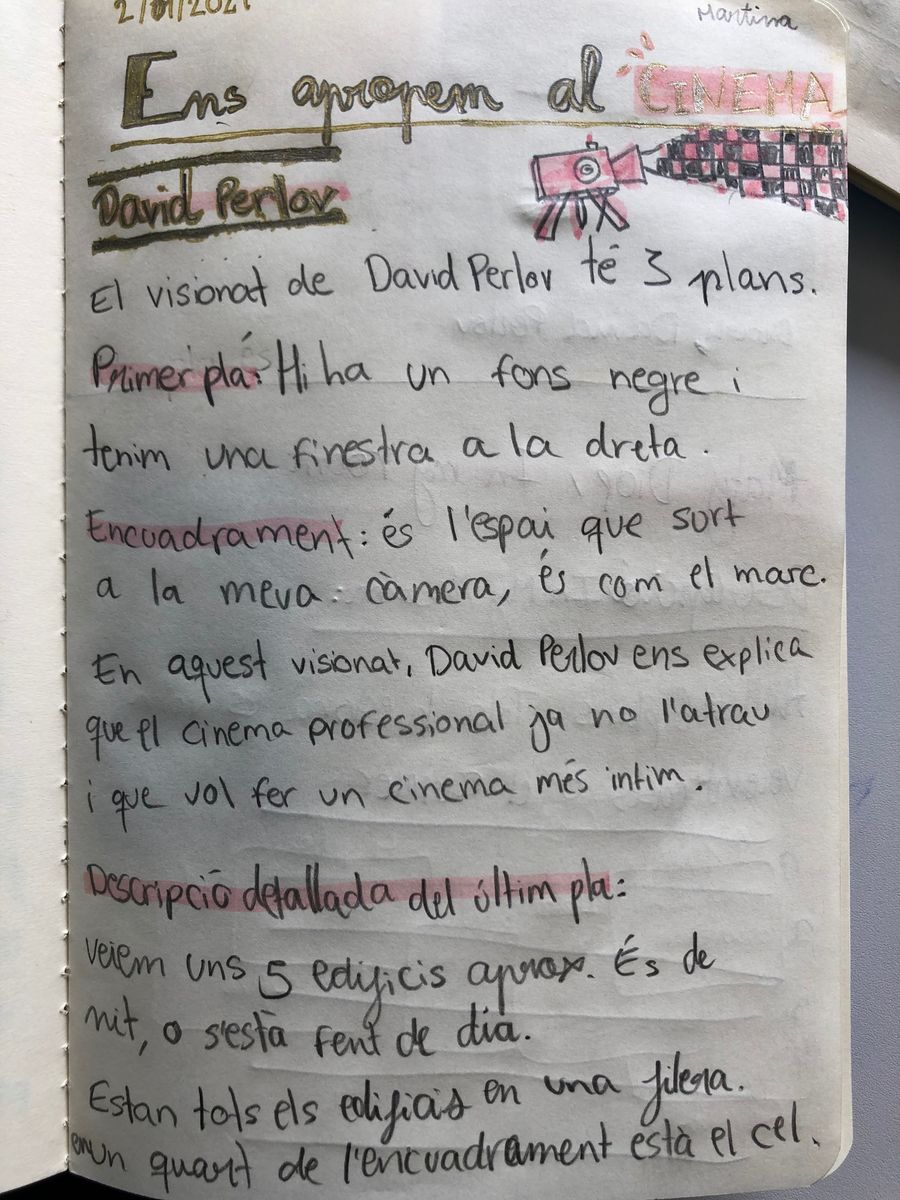 2/01/2021
Martina
Ens apropem al CINEMA
David Perlov
El visionat de David Perlov té 3 plans.
Primer plá: Hi ha un fons negre i
tenim una finestra a la dreta.
Encuadrament: és l'espai que surt
a la meva càmera, és com el marc.
En aquest visionat, David Perlov ens explica
que el cinema professional ja no l'atrau
i que vol fer un cinema més íntim.
Descripció detallada del últim pla:
Veiem uns 5 edificis aprox. És de
nit, o s'està fent de dia.
Estan tots els edificis en una filera.
en un quart de l'encuadrament està el cel.